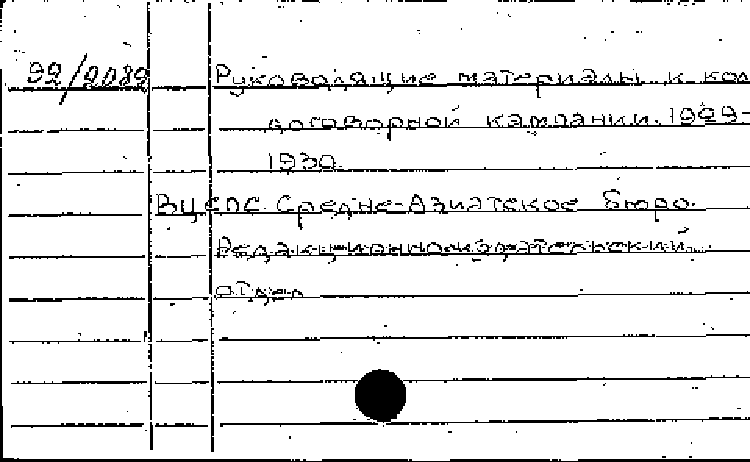 92/2089 Руководящие материалы к кол
договорной кампании. 1929-
1930.
ВЦСПС. Средне-Азиатское бюро.
Редакционно-издательский
отдел